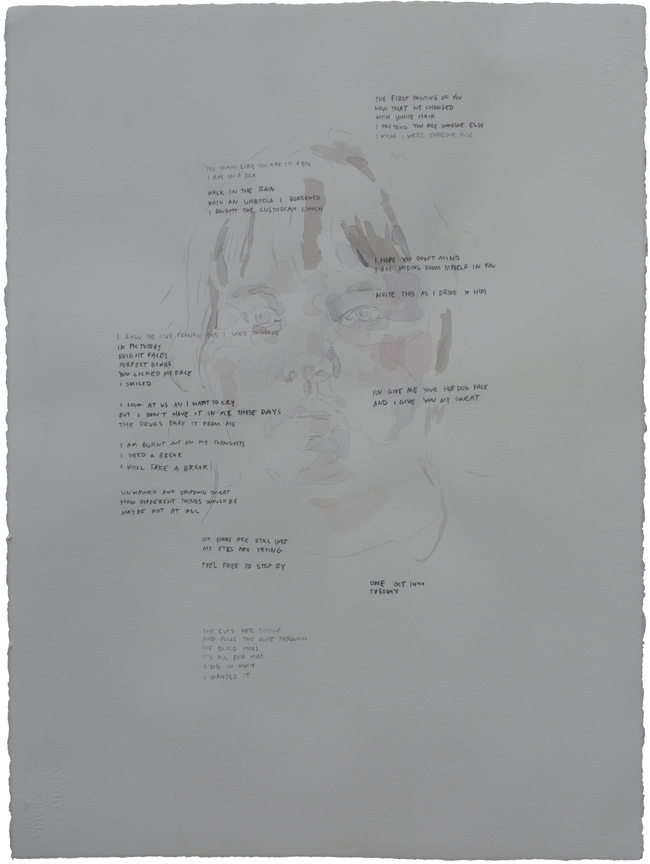 THE FIRST PAINTING OF YOU
NOW THAT WE CHANGED
WITH WHITE HAIR
I PRETEND YOU ARE SOMEONE ELSE
I WISH I WERE SOMEONE ELSE
YOU SOUND LIKE YOU ARE IN A BOX
I AM IN A BOX
WALK IN THE RAIN
WITH AN UMBRELLA I BORROWED
I BOUGHT THE CUSTODIAN LUNCH
I HOPE YOU DON'T MIND
I AM HIDING FROM MYSELF IN YOU
WRITE THIS AS I DRIVE TO HIM
I USED TO MAKE
IN PICTURES
BRIGHT FACES
PERFECT BANGS
YOU LICKED MY FACE
I SMILED
YOU GIVE ME YOUR HOTDOG FACE
AND I GIVE YOU MY SWEAT
I LOOK AT US AN I WANT TO CRY
BUT I DON'T HAVE IT IN ME THESE DAYS
THE DRUGS TAKE IT FROM ME
I AM BURNT OUT ON MY THOUGHTS
I NEED A BREAK
I WILL TAKE A BREAK
UNWASHED AND DRIPPING SWEAT
HOW DIFFERENT THINGS WOULD BE
MAYBE NOT AT ALL
MY SHOES ARE STILL WET
MY EYES ARE TRYING
FEEL FREE TO STOP BY
ONE OCT 14TH
TUESDAY
AND PULLS THE THROUGH
IT'S ALL FOR HIM
I DID SO MUCH
I WANTED IT